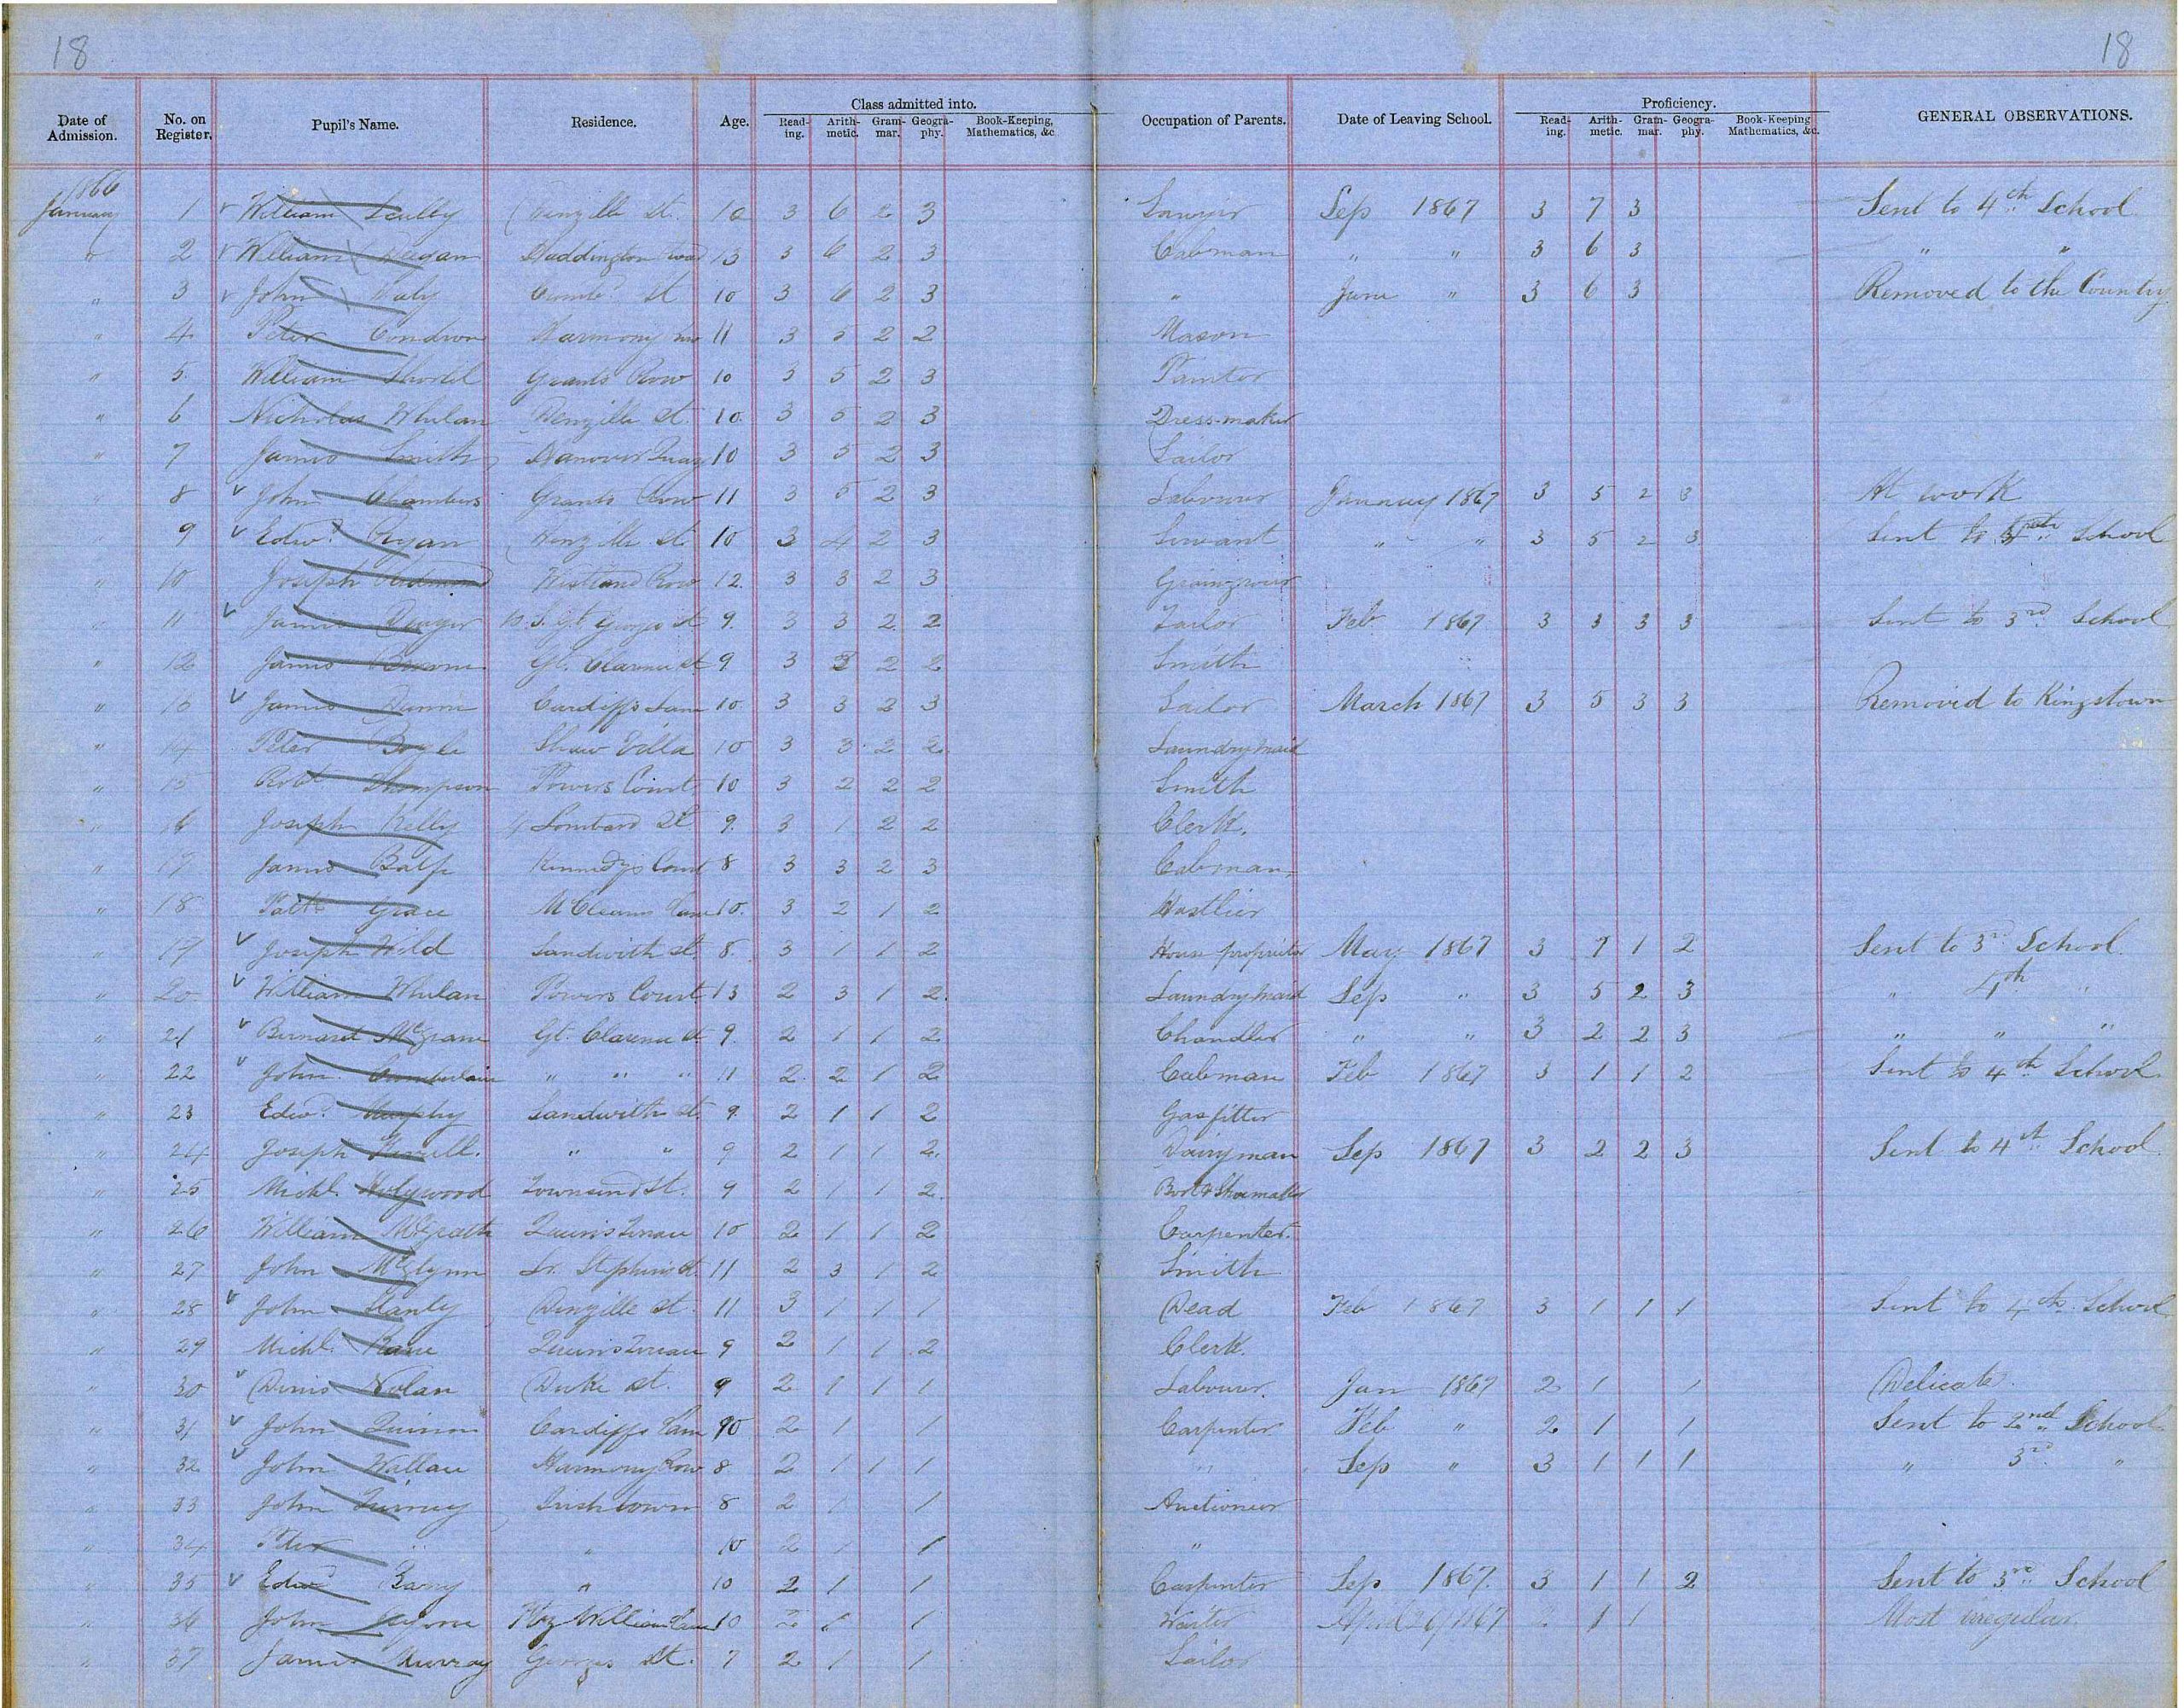 18 18
Date of Admission. No. on Register. Pupil's Name. Residence. Age. Class admitted into. Reading. Arithmetic. Grammar. Geography. Book-Keeping, Mathematics, &c. Occupation of Parents. Date of Leaving School. Proficiency. Reading. Arithmetic. Grammar. Geography. Book-Keeping Mathematics, &c. GENERAL OBSERVATIONS.
1866
January 1 William Scully Denzille St. 10 3 6 2 3 Sep 1867 3 7 3 Sent to 4th School
" 2 William Haddington Road 13 3 6 2 3 Cabman " " 3 6 3 " "
" 3 John Daly St 10 3 6 2 3 " June " 3 6 3 Removed to the Country
" 4 Peter Condron Harmony Row 11 3 5 2 2 Mason
" 5 William Grants Row 10 3 5 2 3 Painter
" 6 Nicholas Whelan Denzille St. 10 3 5 2 3 Dress-maker
" 7 James Smith Hanover Quay 10 3 5 2 3 Sailor
" 8 John Chambers Grants Row 11 3 5 2 3 Labourer January 1867 3 5 2 3 At work
" 9 Edwd. Ryan Denzille St. 10 3 4 2 3 Servant " " 3 5 2 3 Sent to School
" 10 Joseph Redmond Westland Row 12 3 3 2 3
" 11 James Gt. Georges St 9 3 3 2 2 Tailor Feb 1867 3 3 3 3 Sent to 3rd School
" 12 James Gt. Clarence St 9 3 3 2 2 Smith
" 13 James Dunne Cardiffs Lane 10 3 3 2 3 Sailor March 1867 3 5 3 3 Removed to Kingstown
" 14 Peter Boyle Shaw Villa 10 3 3 2 2 Laundrymaid
" 15 Robt Thompson Powers Court 10 3 2 2 2 Smith
" 16 Joseph Kelly Lombard St 9 3 1 2 2 Clerk.
" 17 James Balfe Kennedys Court 8 3 3 2 3 Cabman
" 18 Patk Grace Lane 10 3 2 1 2 Hostlier
" 19 Joseph Wild Sandwith St 8 3 1 1 2 House proprietor May 1867 3 1 2 Sent to 3rd School.
" 20 William Whelan Powers Court 13 2 3 1 2 Laundrymaid Sep " 3 5 2 3 " 4th "
" 21 Bernard McGrane Gt. Clarence St 9 2 1 1 2 Chandler " " 3 2 2 3 " " "
" 22 John Chamberlain " " " 11 2 2 1 2 Cabman Feb 1867 3 1 1 2 Sent to 4th School
" 23 Edwd. Murphy Sandwith St. 9 2 1 1 2 Gasfitter
" 24 Joseph " " 9 2 1 1 2 Dairyman Sep 1867 3 2 2 3 Sent to 4th School
" 25 Michl. Holywood Townsend St. 9 2 1 1 2 Boot & Shoemaker
" 26 William McGrath Queens Terrace 10 2 1 1 2 Carpenter.
" 27 John McGlynn Lr. Stephens St. 11 2 3 1 2 Smith
" 28 John Hanly Denzille St. 11 3 1 1 1 Dead Feb 1867 3 1 1 1 Sent to 4th School
" 29 Michl. Kane Queens Terrace 9 2 1 1 2 Clerk.
" 30 Denis Nolan Duke St. 9 2 1 1 1 Labourer. Jan 1867 2 1 1 Delicate.
" 31 John Quinn Cardiffs Lane 10 2 1 1 Carpenter Feb " 2 1 1 Sent to 2nd School
" 32 John Wallace Harmony Row 8 2 1 1 1 Sep " 3 1 1 1 " 3rd "
" 33 John Irishtown 8 2 1 1 Auctioneer
" 34 Peter " " 10 2 1 1 "
" 35 Edwd Barry " 10 2 1 1 Carpenter Sep 1867. 3 1 1 2 Sent to 3rd School
" 36 John Fitz William Lane 10 2 1 1 Waiter April 26/1867 2 1 1 Most irregular
" 37 James Murray Georges St. 7 2 1 1 Sailor